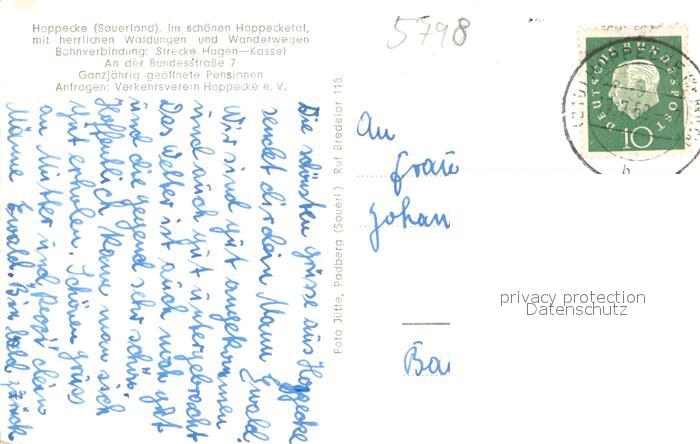 Hoppecke (Sauerland). Im schönen Hoppecketal,
mit herrlichen Waldungen und Wanderwegen
Bahnverbindung: Strecke Hagen—Kassel
An der Bundesstraße 7
Ganzjährig geöffnete Pensionen
Anfragen: Verkehrsverein Hoppecke e. V.
5798
Die schönsten grüsse aus Hoppecke
sendet dir dein Mann Ewald
Wir sind gut angekommen
und auch gut untergebracht
Das Wetter ist auch noch gut
und die gegend sehr schön.
Hoffentlich kann man sich
gut erholen. Schönen gruss
an Mutter und Peggi dein
Männe Ewald. Bin bald zurück
Foto Jütte, Padberg (Sauerl) Ruf Bredelar 113
An
Frau
Johan
Bai
DEUTSCHE BUNDESPOST
10
b
privacy protection
Datenschutz